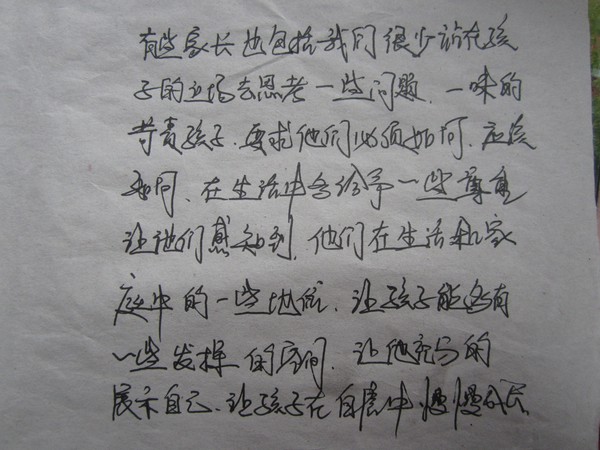 有些家长也包括我们很少站在孩
子的立场去思考一些问题.一味的
苛责孩子.要求他们必须如何.应该
如何.在生活中多给予一些尊重
让他们感知到.他们在生活和家
庭中的一些地位.让孩子能够有
一些发挥的空间.让他充分的
展示自己.让孩子在自信中.慢慢成长